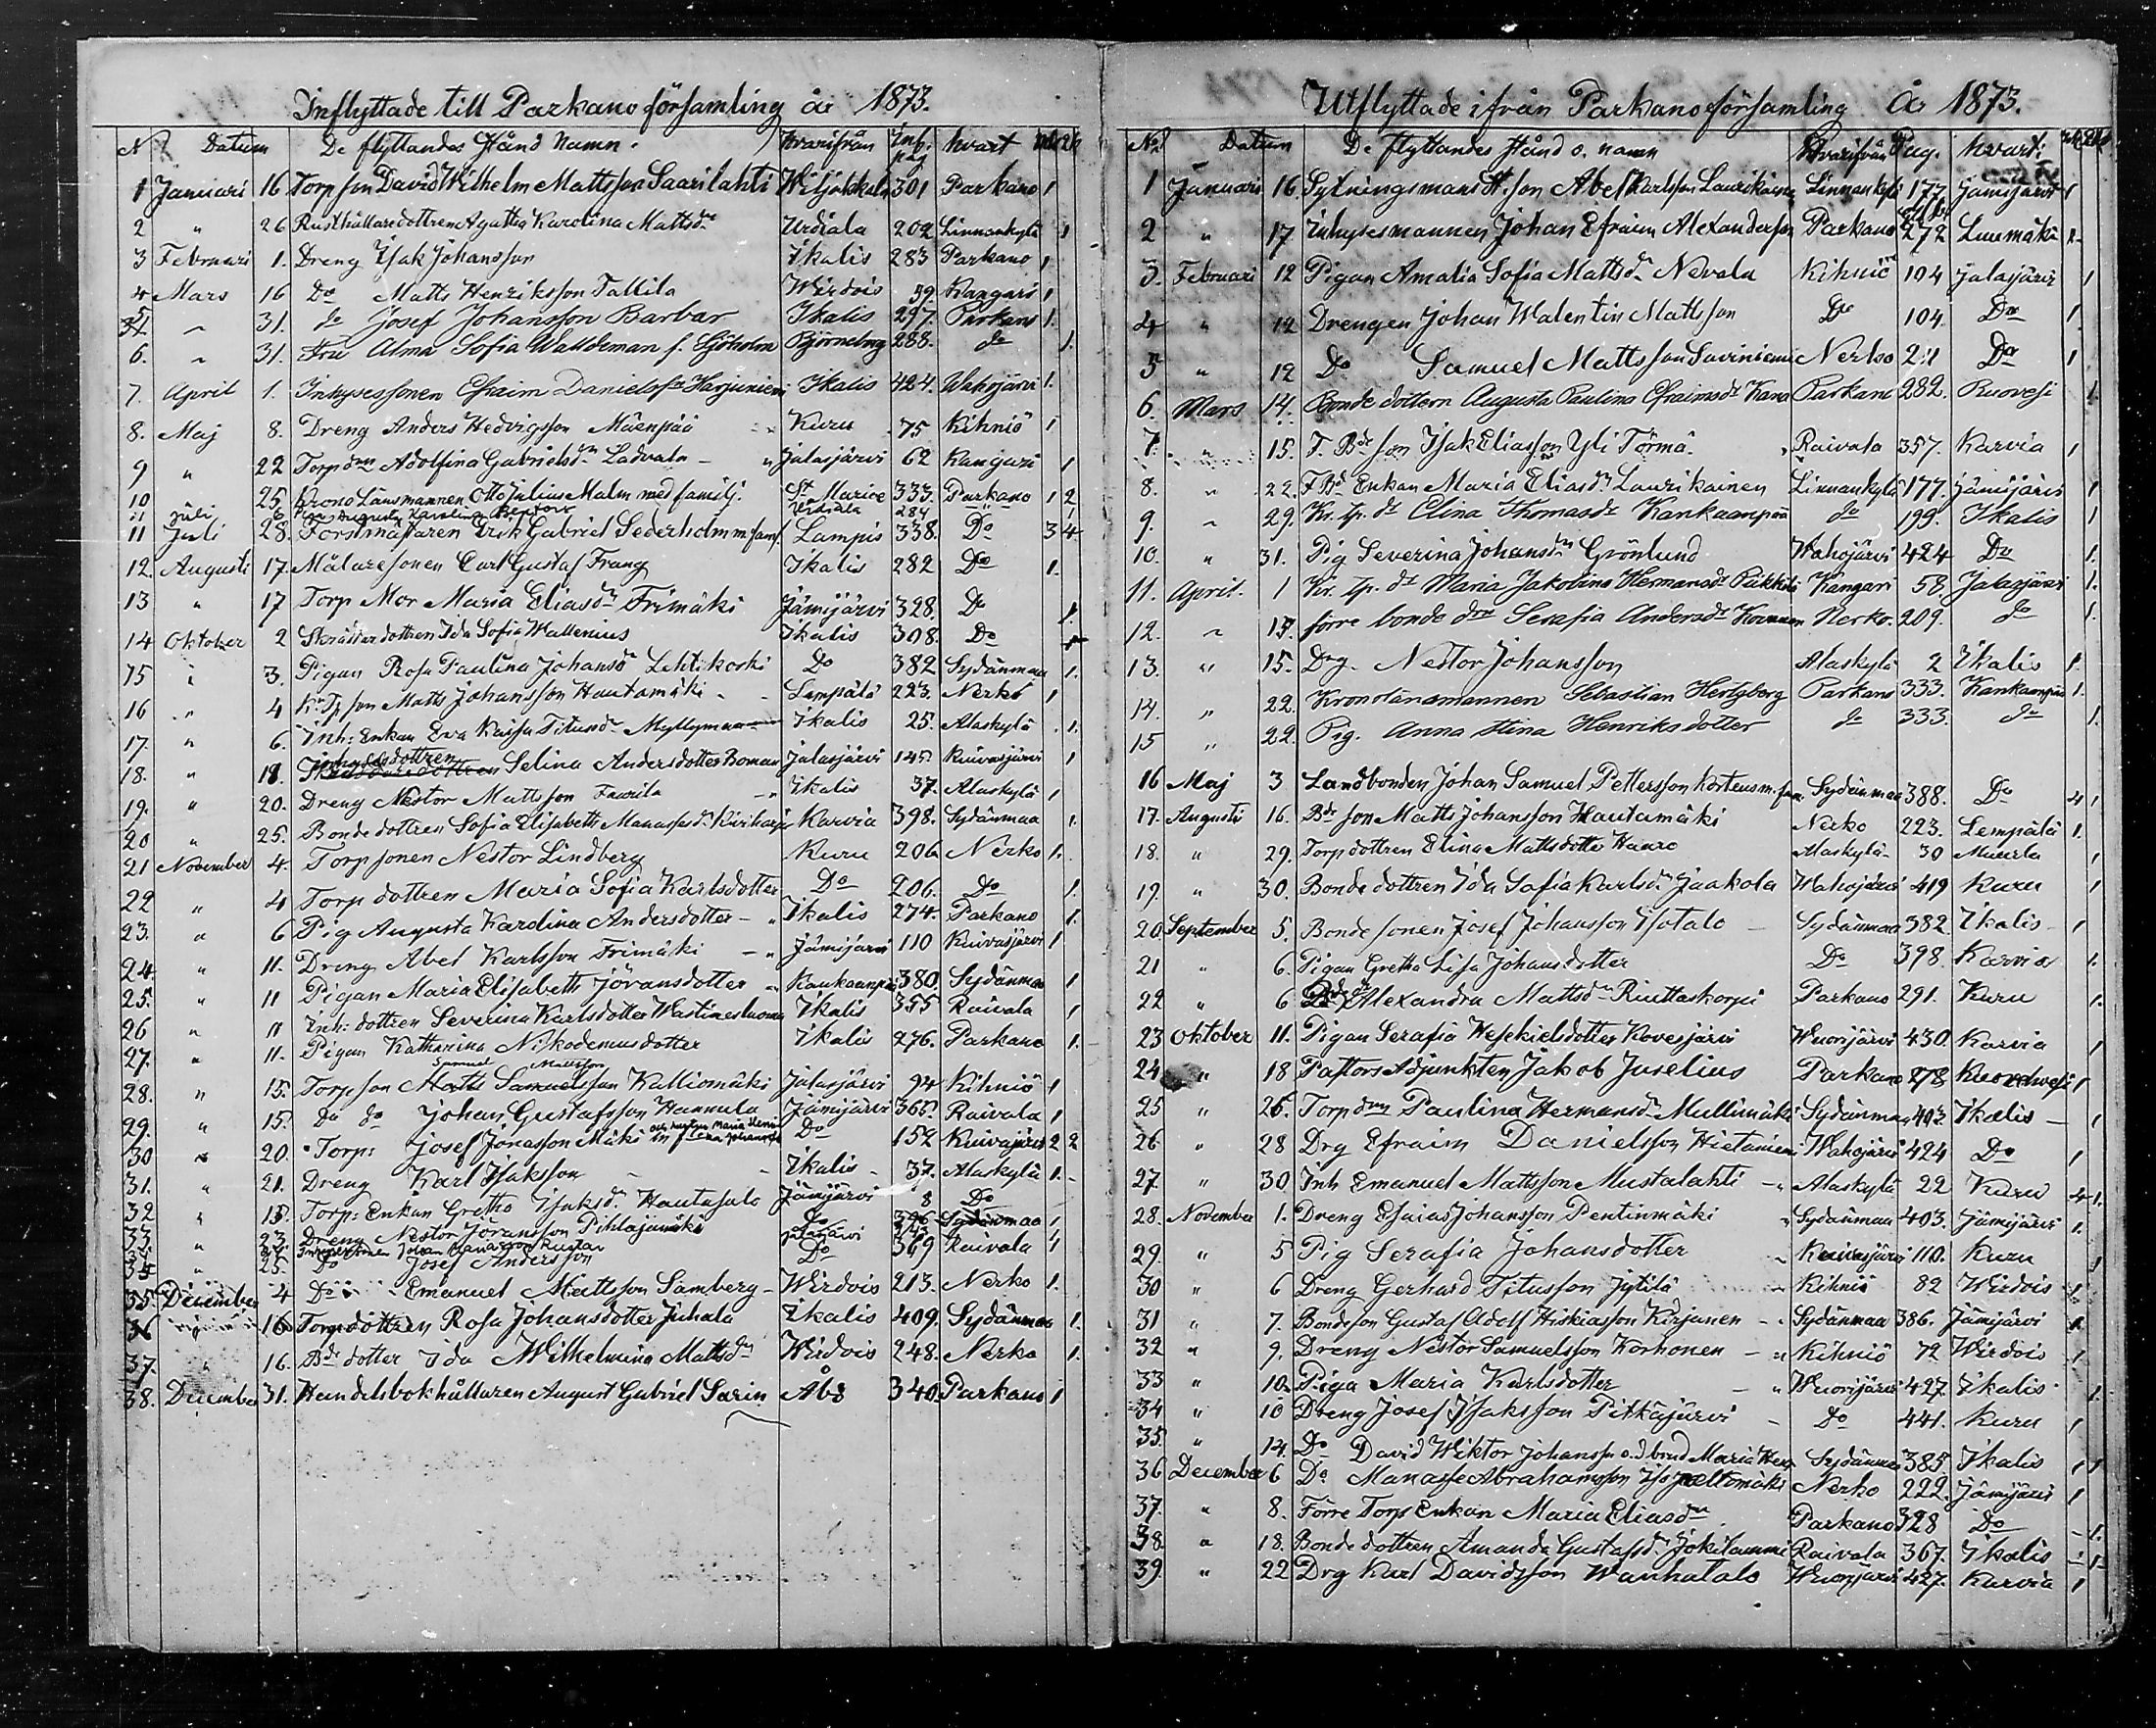 Inflyttade till Parkano församling år 1873.
N Datum De flyttandes stånd Namn. Hvarifrån Inf. pag hvart
1 Januari 16 Torp son David Wilhelm Mattsson Saarilahti 301 Parkano 1
2 " 26 Rusthållaredottren Agatha Karolina Mattsdr Urdiala 202 Linnankylä 1
3 Februari 1. Dreng Isak Johansson Ikalis 283 Parkano 1
4 Mars 16 Do Matts Henriksson Tallila Wirdois 59. Kangari 1
5 " 31. do Josef Johansson Barbar Ikalis 297. Parkano 1.
6. " 31. Fru Alma Sofia f. Sjöholm Björneborg 288. do 1.
7. April 1. Inhysessonen Efraim Danielss:n Harjuniemi Ikalis 424. Wahojärvi 1.
8. Maj 8. Dreng Anders Hedvigsson Mäenpää Kuru 75 Kihniö 1
9 " 22 Torp drn Adolfina Gabrielsdr Ladvala Jalasjärvi 62 Kangari 1
10 25 Krono Länsmannen Otto Julius Malm med familj. St Marice 333. Parkano 1 2
11 Juli 6 Augusta Karolina Urdiala 284 " 1
11 Juli 28. Forstmästaren Erik Gabriel Sederholm m fam. Lampis 338. Do 3 4
12. Augusti 17. Målaresonen Carl Gustaf Frang Ikalis 282 Do 1.
13 " 17 Torp Mor Maria Eliasdr Frimäki Jämijärvi 328. Do 1.
14 Oktober 2 Skräddardottren Ida Sofia Wallenius Ikalis 308. Do 1
15 " 3. Pigan Rosa Paulina Johansdr Lehtikoski Do 382 Sydänmaa 1.
16 " 4 Kr Tp son Matts Johansson Hautamäki Lempälä 223. Nerkö 1
17. " 6. Inh: Enkan Eva Kaisa Titusdr Myllymaa Ikalis 25. Alaskylä 1.
18. " 18. inhysesdottren Selina Andersdotter Boman Jalasjärvi 145. Kuivasjärvi 1
19. " 20. Dreng Nestor Mattsson Faurila Ikalis 37. Alaskylä 1
20 " 25. Bondedottren Sofia Elisabeth Manassesdr Kiviharju Karvia 398. Sydänmaa 1.
21 November 4. Torp sonen Nestor Lindberg Kuru 206 Nerko 1.
22 " 4 Torp dottren Maria Sofia Karlsdotter Do 206. Do 1.
23. " 6 Pig Augusta Karolina Andersdotter Ikalis 274. Parkano 1.
24 " 11. Dreng Abel Karlsson Frimäki Jämijärvi 110 Kuivasjärvi 1
25. " 11 Pigan Maria Elisabeth Göransdotter Kankaanpää 380. Sydänmaa 1
26 " 11 Inh: dottren Severina Karlsdotter Wastimesluoma Ikalis 355 Raivala 1
27. " 11. Pigan Katharina Nikodemusdotter Ikalis 276. Parkano 1.
Samuel Mattsson
28. " 15. Torp son Matts Samuelsson Kalliomäki Jalasjärvi 94 Kihniö 1
29. " 15. Do do Johan Gustafsson Hannula Jämijärvi 366. Raivala 1
30 " 20. Torp: Josef Jonasson Mäki Do 152 Kuivasjärvi 2 2
31. " 21. Dreng Karl Isaksson Ikalis 37. Alaskylä 1.
32 " 15. Torp: Enkan Gretha Isaksdr Hautasalo Jämijärvi 8 Do
33. " 23. Dreng Nestor Göransson Pihlajamäki Do 396 Sydänmaa 1
Johan Jalasjärvi
34 " 25. Do Josef Andersson Do 369 Raivala 1
35. December 4 Do Emanuel Mattsson Samberg Wirdois 213. Nerko 1.
36 " 16 Torpdottren Rosa Johansdotter Juhala Ikalis 409. Sydänmaa 1.
37. " 16. Bde dotter Ida Wilhelmina Mattsdr Wirdois 248. Nerko 1.
38. December 31. Handelsbokhållaren August Gabriel Sarin Åbo 340. Parkano 1
Utflyttade ifrån Parkano församling År 1873.
No Datum De flyttandes stånd o. namn Hvarifrån Pag. hvart:
1 Januari 16. Sytningsmans St. son Abel Karlsson Laurikainen Linnankylä 177 Jämijärvi 1
2 " 17 Inhysesmannen Johan Efraim Alexandersson Parkano 272 Luumäki
3. Februari 12 Pigan Amalia Sofia Mattsdr Nevala Kihniö 104 Jalasjärvi 1
4 " 12 Drengen Johan Walentin Mattsson Do 104. Do 1.
5 " 12 Do Samuel Mattsson Saviniemi Nerko 211 Do 1
6. Mars 14. Bonde dottern Augusta Paulina Efraimsdr Kana Parkano 282. Ruovesi 1.
7. " 15. F. Bde son Isak Eliasson Yli Törmä Raivala 357. Karvia 1
8. " 22. F Bde Enkan Maria Eliasdr Laurikainen Linnankylä 177. Jämijärvi 1
9. " 29. Kr. tp. dr Elina Thomasdr Kankaanpää do 199. Ikalis 1
10. " 31. Pig Severina Johansdr Grönlund Wahojärvi 424 Do 1.
11. April. 1 Kr. tp. dr Maria Jakobina Hermansdr Kangari 58. Jalasjärvi 1.
12. " 13. förre bonde drn Serafia Andersdr Nerko. 209. do 1.
13. " 15. Drg. Nestor Johansson Alaskylä 2 Ikalis 1.
14. " 22. Kronolänsmannen Sebastian Hertzberg Parkano 333. Kankaanpää 1.
15 " 22. Pig. Anna Stina Henriksdotter do 333. do 1.
16 Maj 3 Landbonden Johan Samuel Pettersson Korteus m. fam. Sydänmaa 388. Do 4 1
17. Augusti 16. Bde son Matts Johansson Hautamäki Nerko 223. Lempälä 1.
18. " 29. Torpdottren Elina Mattsdotter Haaro Alaskylä 30 Muurla 1
19. " 30. Bonde dottren Ida Sofia Karlsdr Jaakola Wahojärvi 419 Kuru 1
20. September 5. Bonde sonen Josef Johansson Isotalo Sydänmaa 382. Ikalis 1
21 " 6. Pigan Gretha Lisa Johansdotter Do 398. Karvia 1.
22 " 6 Alexandra Mattsdr Riuttaskorpi Parkano 291. Kuru 1.
23 Oktober 11. Pigan Serafia Hesekielsdotter Kovesjärvi Wuorijärvi 430. Karvia 1
24 " 18 Pastors Adjunkten Jakob Juselius Parkano 278 1
25 " 26. Torp drn Paulina Hermansdr Mullimäki Sydänmaa 403. Ikalis 1
26 " 28 Drg Efraim Danielsson Hietaniemi Wahojärvi 424 Do 1
27. " 30 Inh Emanuel Mattsson Mustalahti Alaskylä 22 Kuru 4 1.
28. November 1. Dreng Esaias Johansson Pentinmäki Sydänmaa 403. Jämijärvi 1.
29. " 5 Pig Serafia Johansdotter Kuivasjärvi 110. Kuru 1
30 " 6 Dreng Gerhard Titusson Jytilä Kihniö 82 Wirdois 1.
31 " 7. Bondeson Gustaf Adolf Hiskiasson Kirjanen Sydänmaa 386. Jämijärvi 1.
32 " 9. Dreng Nestor Samuelsson Korhonen Kihniö 72 Wirdois 1
33 " 10. Piga Maria Karlsdotter Wuorijärvi 427. Ikalis 1.
34 " 10 Dreng Josef Isaksson Pitkäjärvi Do 441. Kuru 1
35. " 14. Do David Wiktor Johansson o. brud Maria Sydänmaa 385 Ikalis 1 1
36 December 6 Do Manasse Abrahamsson Nerko 222. Jämijärvi 1
37. " 8. Förre Torp Enkan Maria Eliasdr Parkano 328 Do 1.
38. " 18. Bonde dottren Amanda Gustafsdr Jokilammi Raivala 367. Ikalis 1
39. " 22 Drg Karl Davidsson Wanhatalo Wuorijärvi 427. Karvia 1